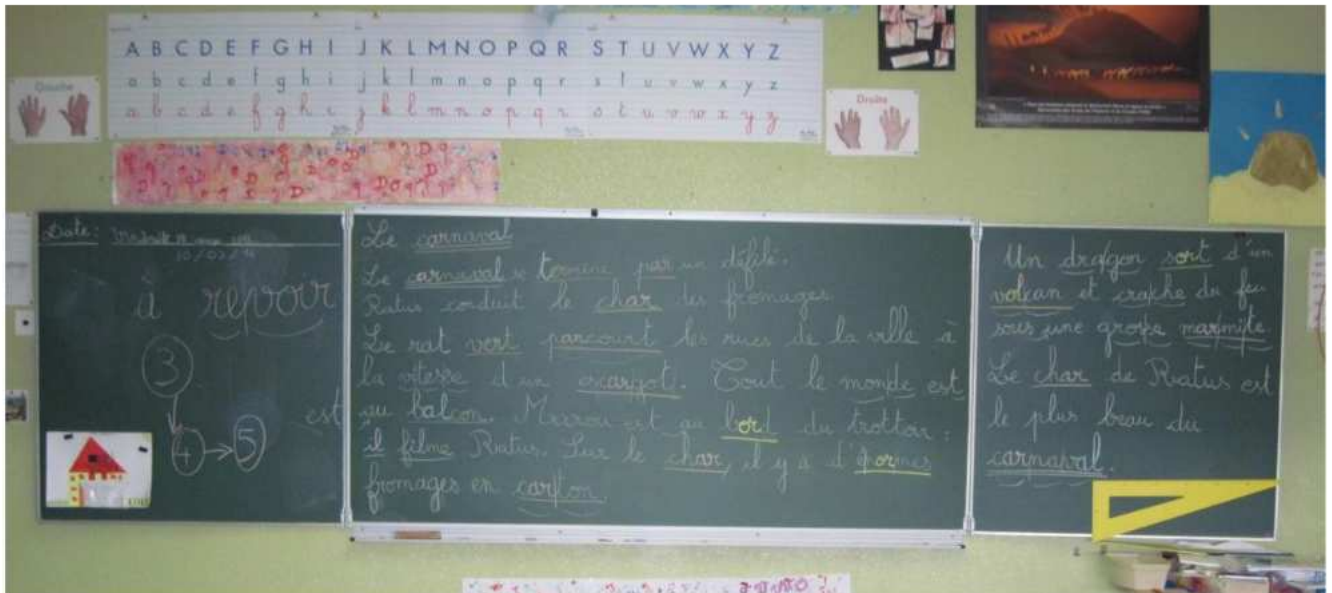 A B C D E F G H I J K L M N O P Q R S T U V W X Y Z
a b c d e f g h i j k l m n o p q r s t u v w x y z
a b c d e f g h i j k l m n o p q r s t u v w x y z
Gauche
Droite
Date:
à revoir
3
4 5
Le carnaval
Le carnaval se termine par un défilé.
Ratus conduit le char des fromages
Le rat vert parcourt les rues de la ville à
la vitesse d'un escargot. Tout le monde est
est au balcon. Marou est au bord du trottoir :
il filme Ratus. Sur le char, il y a d'énormes
fromages en carton.
Un dragon sort d'un
volcan et crache du feu
sous une grosse marmite.
Le char de Ratus est
le plus beau du
carnaval.